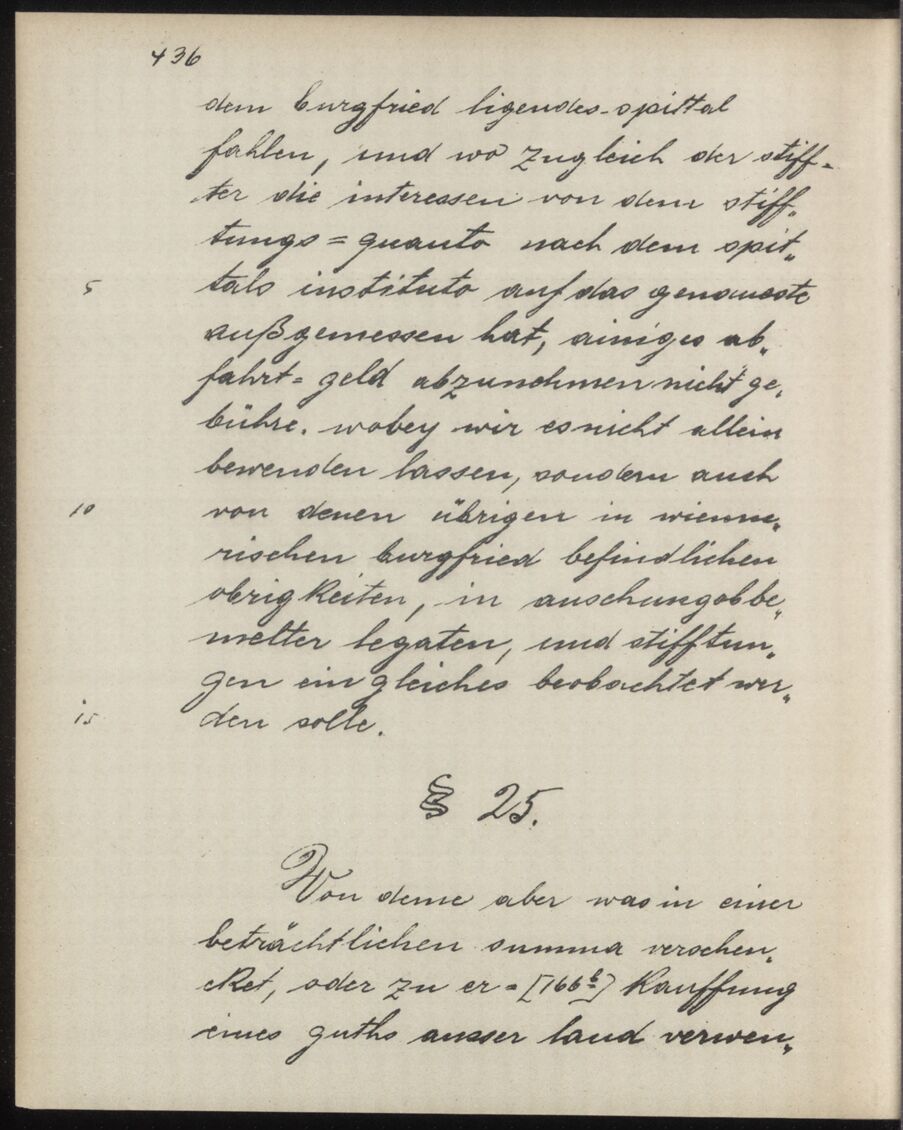 436
dem burgfried ligendes spittal
fahlen, und wo zugleich der stiff-
ter die interessen von dem stiff„
tungs=quanto nach dem spit„
5 tals instituto auf das genaueste
außgemessen hat, einiges ab„
fahrt=geld abzunehmen nicht ge„
bühre. wobey wir es nicht allein
bewenden lassen, sondern auch
10 von denen übrigen in wienne„
rischen burgfried befindlichen
obrigkeiten, in ansehung obbe„
melter legaten, und stifftun„
gen ein gleiches beobachtet wer„
15 den solle.
§ 25.
Von deme aber was in einer
beträchtlichen summa verschen„
cket, oder zu er=[166b] kauffung
eines guths ausser land verwen„